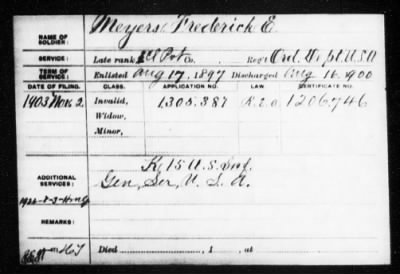 NAME OF SOLDIER: Meyers, Frederick E.
SERVICE: Late rank, Pvt Co. Reg't Ord. Dept. U.S.A
TERM OF SERVICE: Enlisted Aug 17, 1897 Discharged Aug 16, 1900
DATE OF FILING. CLASS. APPLICATION NO. LAW. CERTIFICATE NO.
1903 Nov. 2. Invalid, 1303.387 1206746
Widow,
Minor,
ADDITIONAL SERVICES: K, 15 U.S. Inf.
Gen. Ser. U.S.A.
REMARKS:
Died , 1 , at